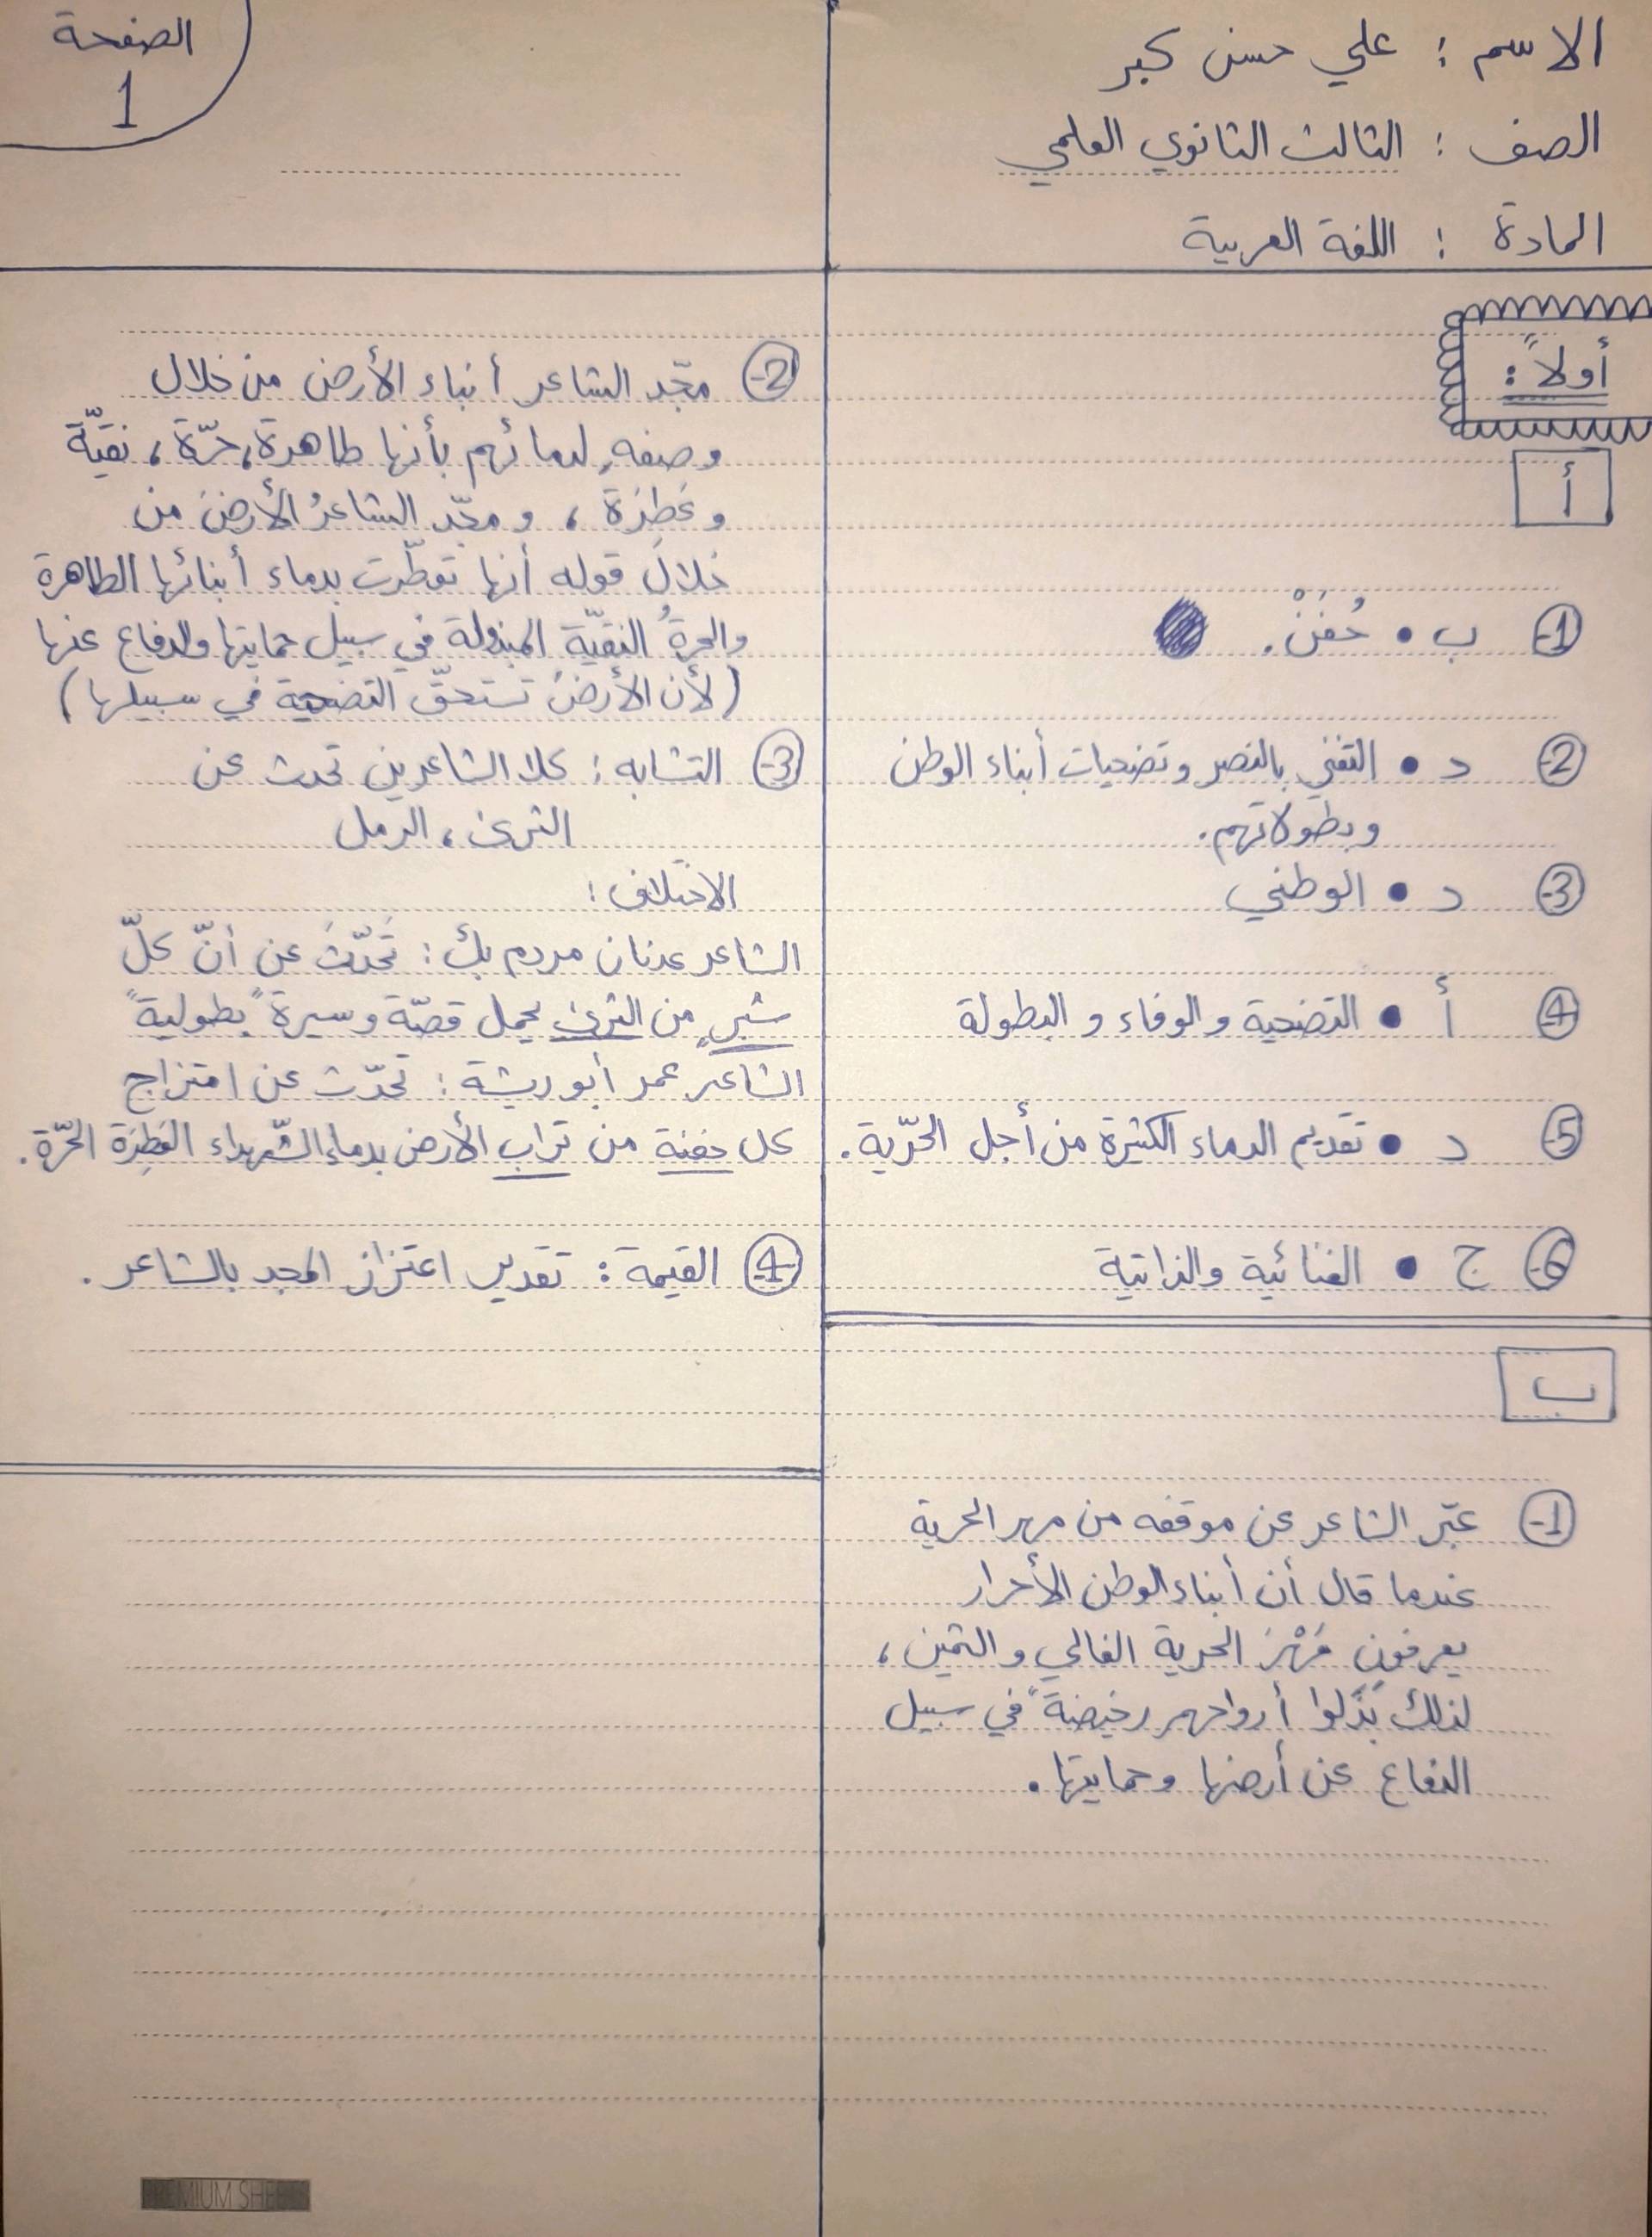 الاسم : علي حسن كبر
الصف : الثالث الثانوي العلمي
المادة : اللغة العربية
الصفحة
1
أولاً :
أ
1- ب • حُفَنْ .
2- د • التغني بالنصر وتضحيات أبناء الوطن
وبطولاتهم .
3- د • الوطني
4- أ • التضحية والوفاء و البطولة
5- د • تقديم الدماء الكثيرة من أجل الحرّية .
6- ج • الغنائية والذاتية
ب
1- عبّر الشاعر عن موقفه من مهر الحرية
عندما قال أن أبناء الوطن الأحرار
يعرفون مَهْرَ الحرية الغالي و الثمين ،
لذلك بَذَلوا أرواحهم رخيصةً في سبيل
الدفاع عن أرضها وحمايتها .
2- مجّد الشاعر أبناء الأرض من خلال
وصفهِ لدمائهم بأنها طاهرة ، حرّة ، نقيّة
وعَطِرَة ، ومجّد الشاعرُ الأرضَ من
خلال قوله أنها تعطّرت بدماء أبنائها الطاهرة
والحرة النقيّة المبذولة في سبيل حمايتها والدفاع عنها
( لأن الأرضَ تستحقّ التضحية في سبيلها )
3- التشابه : كلا الشاعرين تحدث عن
الثرى ، الرمل
الاختلاف :
الشاعر عدنان مردم بك : تَحَدّثَ عن أنّ كلّ
شبرٍ من الثرى يحمل قصّة وسيرة "بطولية"
الشاعر عمر أبو ريشة : تحدّث عن امتزاج
كل حفنة من تراب الأرض بدماء الشّهداء العَطِرَة الحّرة .
4- القيمة : تقدير اعتزاز المجد بالشاعر .